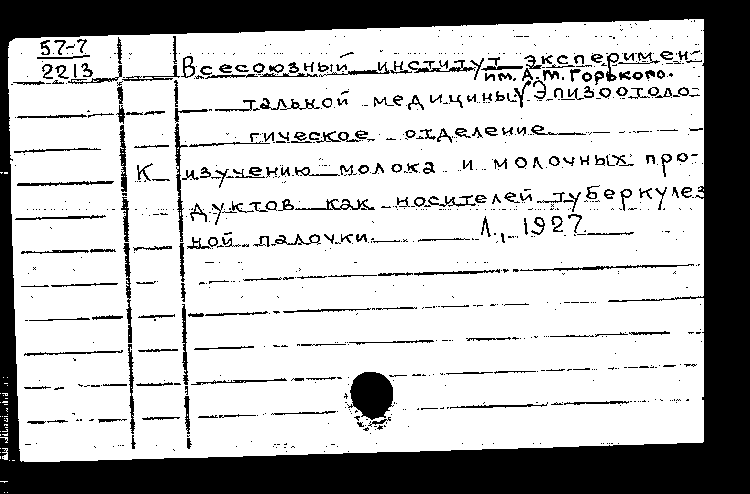 57-7
2213
Всесоюзный институт эксперимен-
им. А.М. Горького.
тальной медицины√Эпизоотоло-
гическое отделение
К изучению молока и молочных про-
дуктов как носителей туберкулез
ной палочки Л., 1927